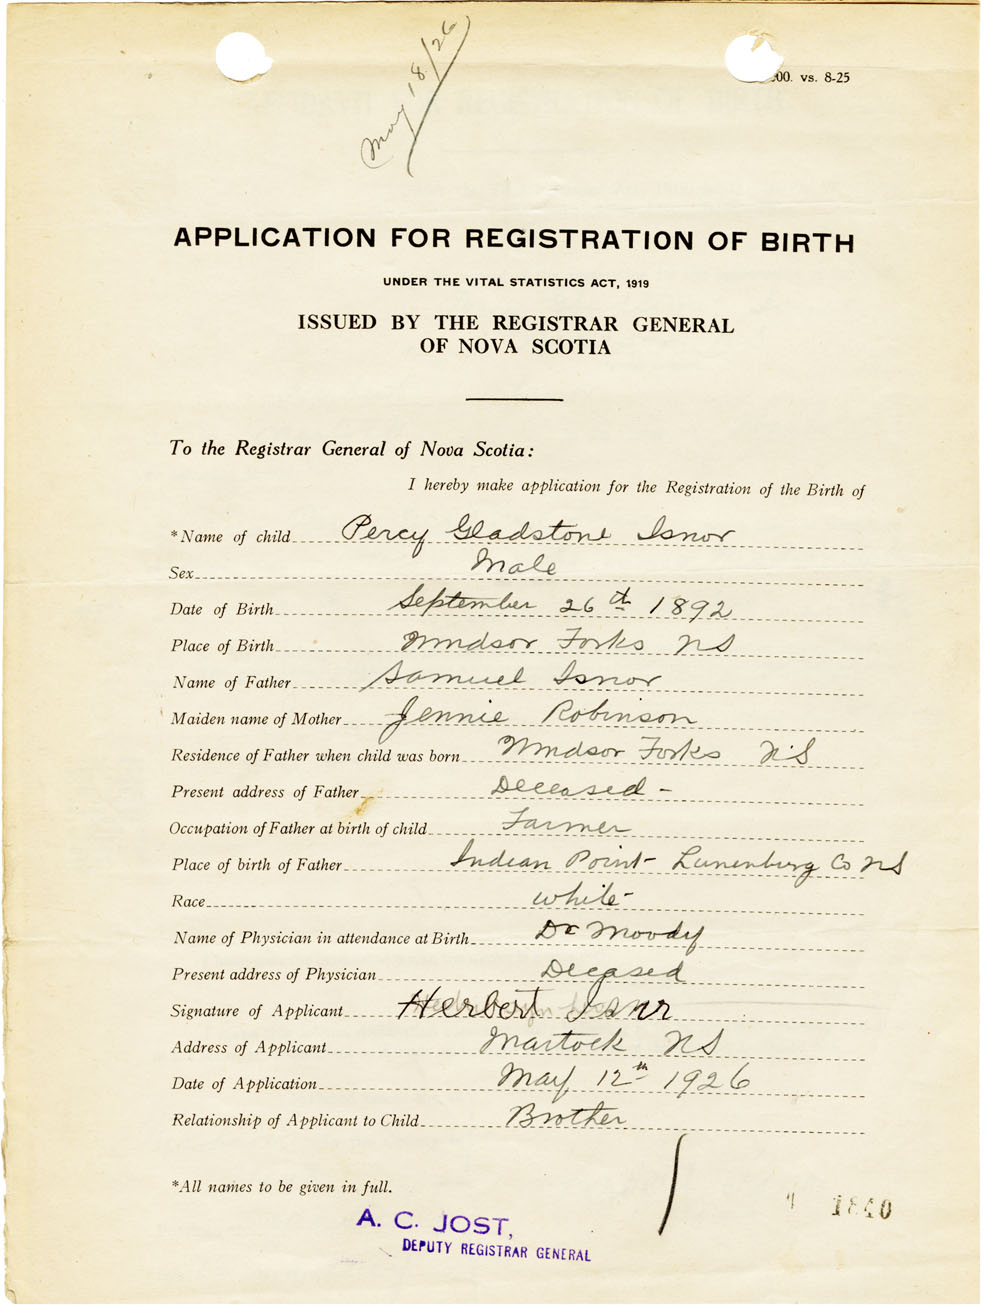 May 18/26
00. vs. 8-25
APPLICATION FOR REGISTRATION OF BIRTH
UNDER THE VITAL STATISTICS ACT, 1919
ISSUED BY THE REGISTRAR GENERAL
OF NOVA SCOTIA
To the Registrar General of Nova Scotia:
I hereby make application for the Registration of the Birth of
*Name of child Percy Gladstone Isnor
Sex Male
Date of Birth September 26th 1892
Place of Birth Windsor Forks NS
Name of Father Samuel Isnor
Maiden name of Mother Jennie Robinson
Residence of Father when child was born Windsor Forks N.S
Present address of Father Deceased -
Occupation of Father at birth of child Farmer
Place of birth of Father Indian Point - Lunenburg Co NS
Race white -
Name of Physician in attendance at Birth Dr Moody
Present address of Physician Deceased
Signature of Applicant Herbert Isnr
Address of Applicant Martock NS
Date of Application May 12th 1926
Relationship of Applicant to Child Brother
*All names to be given in full.
A. C. JOST,
DEPUTY REGISTRAR GENERAL